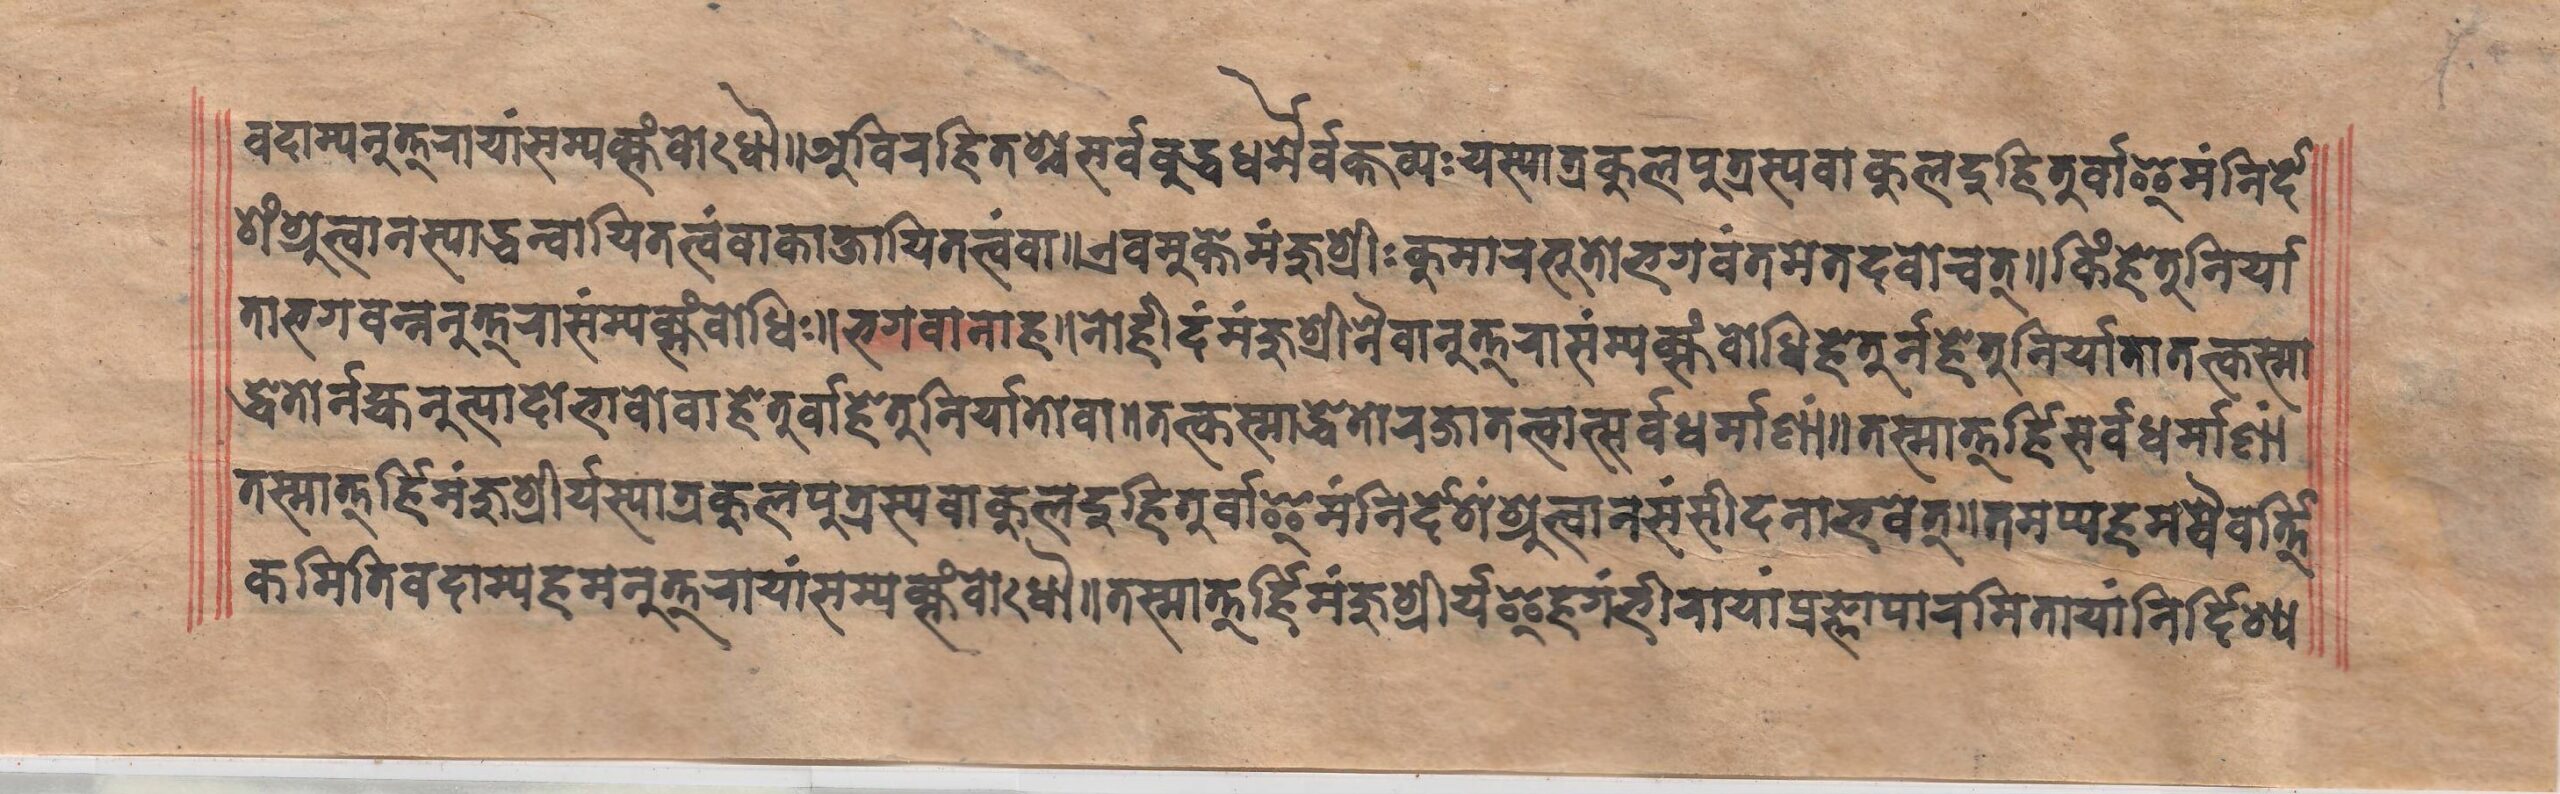 वदाम्यनुत्तरायांसम्यक्संबोधौ॥अविरहितश्चसर्वबुद्धधर्मैर्वक्तव्यःयस्यात्रकुलपुत्रस्यवाकुलदुहितुर्वाइमंनिर्दे
शंश्रुत्वानस्याद्धन्वायितत्वंवाकाञ्जायितत्वंवा॥एवमुक्तेमंजुश्रीःकुमारभूतोभगवंतमेतदवोचत्॥किंहेतुनिर्या
ताभगवन्ननुत्तरासंम्यक्संबोधिः॥भगवानाह॥नोहीदंमंजुश्रीनैवानुत्तरासंम्यक्संबोधिहेतुर्नहेतुनिर्यातातत्कस्मा
द्धेतोर्नह्यनुत्पादोभावोवाहेतुर्वाहेतुनिर्यातोवा॥तत्कस्माद्धेतोरजातत्वात्सर्वधर्माणां॥तस्मात्तर्हिसर्वधर्माणां
तस्मात्तर्हिमंजुश्रीर्यस्यात्रकुलपुत्रस्यवाकुलदुहितुर्वाइमंनिर्देशंश्रुत्वानसंसीदनाभवेत्॥तमप्यहमवैवर्त्ति
कमितिवदाम्यहमनुत्तरायांसम्यक्संबोधौ॥तस्मात्तर्हिमंजुश्रीर्यइहगंभीरायांप्रज्ञापारमितायांनिर्दिश्य